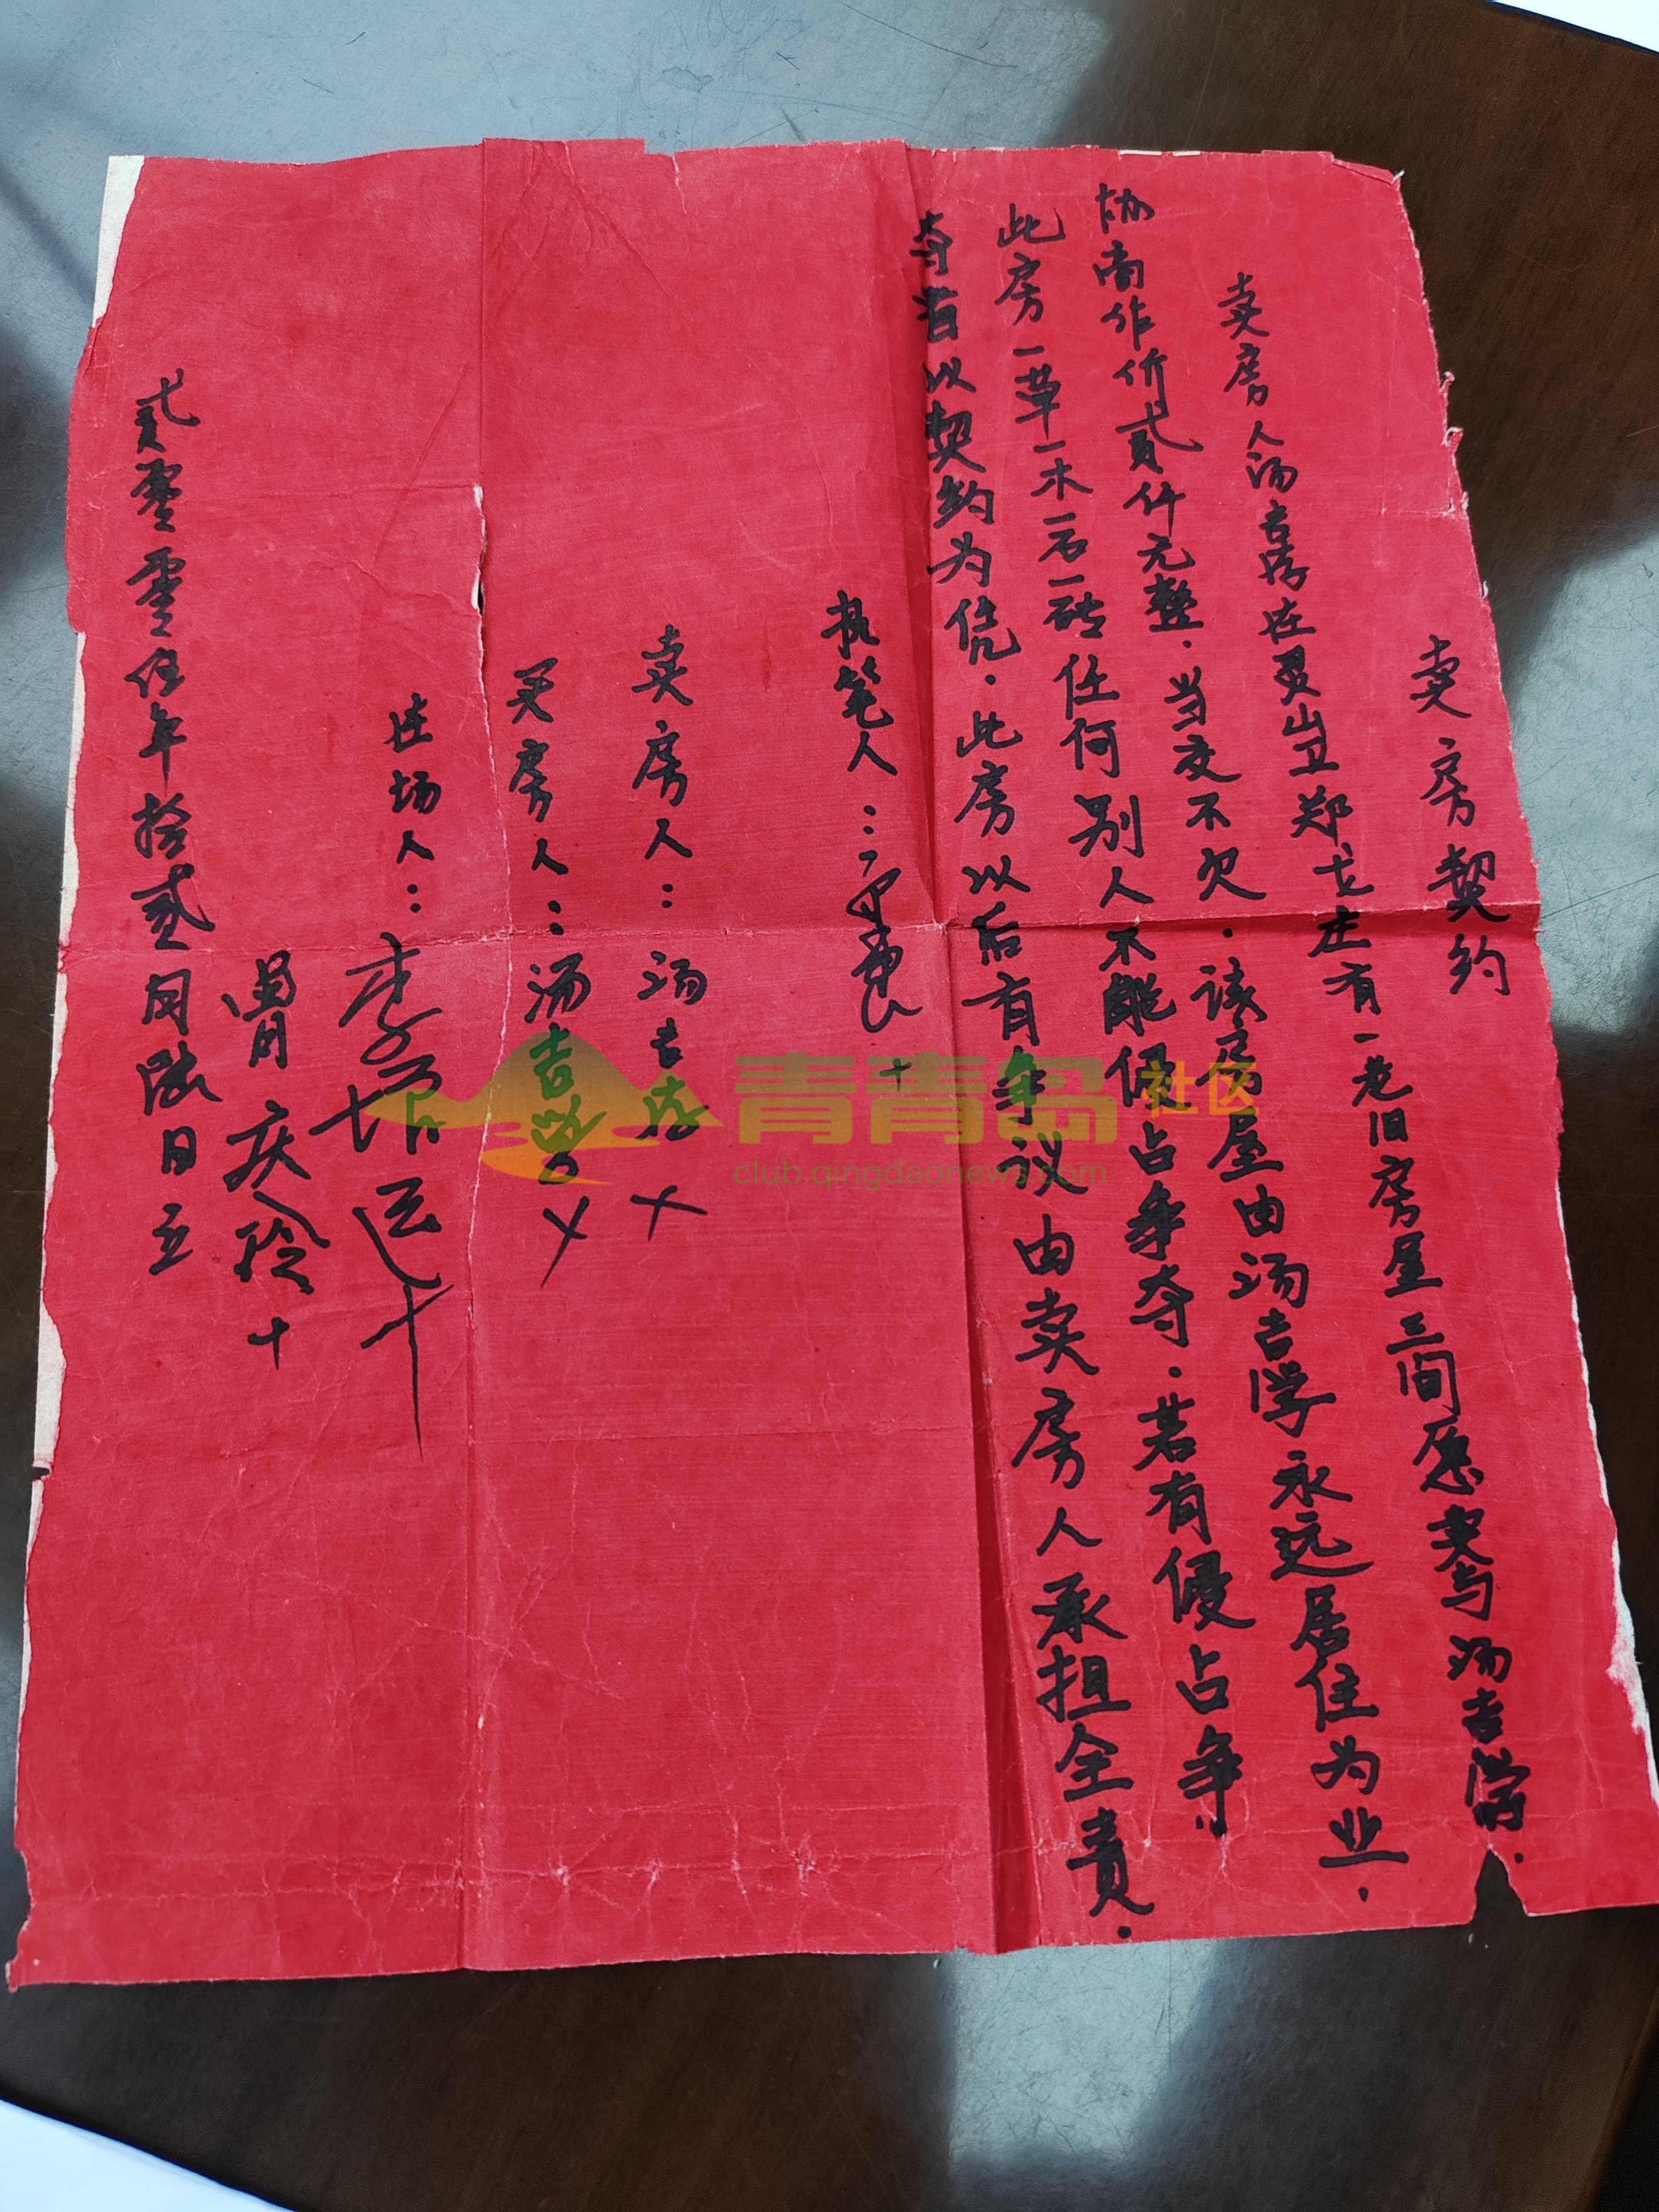 卖房契约
卖房人汤吉清在灵山卫郑戈庄有一老旧房屋三间愿卖与汤吉学.
协商作价贰仟元整.当交不欠.该房屋由汤吉学永远居住为业.
此房一草一木一石一砖任何别人不能侵占争夺.若有侵占争
夺者以契约为凭.此房以后有争议由卖房人承担全责.
执笔人: 十
卖房人:汤吉 乂
买房人:汤吉学 乂
在场人:李 运十
庆玲十
贰零零伍年拾贰月陆日立
青青岛社区
club.qingdaonews.com